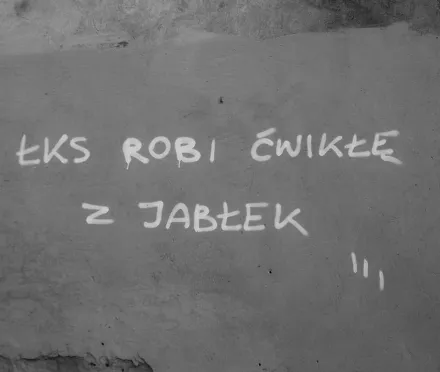 ŁKS ROBI ĆWIKŁĘ
Z JABŁEK